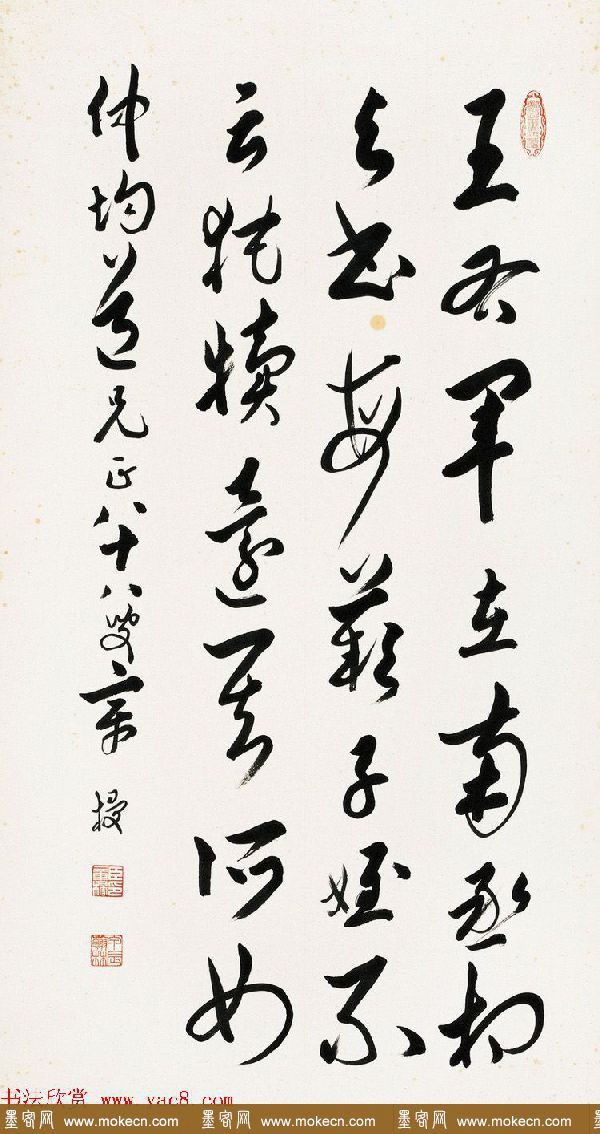 王右軍在南丞相
与書每歎子姪不
云㹠犢還其所如
仲均道兄正八十八叟章梫
书法欣赏 www.yac8.com
墨客网 www.mokecn.com 墨客网 www.mokecn.com 墨客网 www.mokecn.com